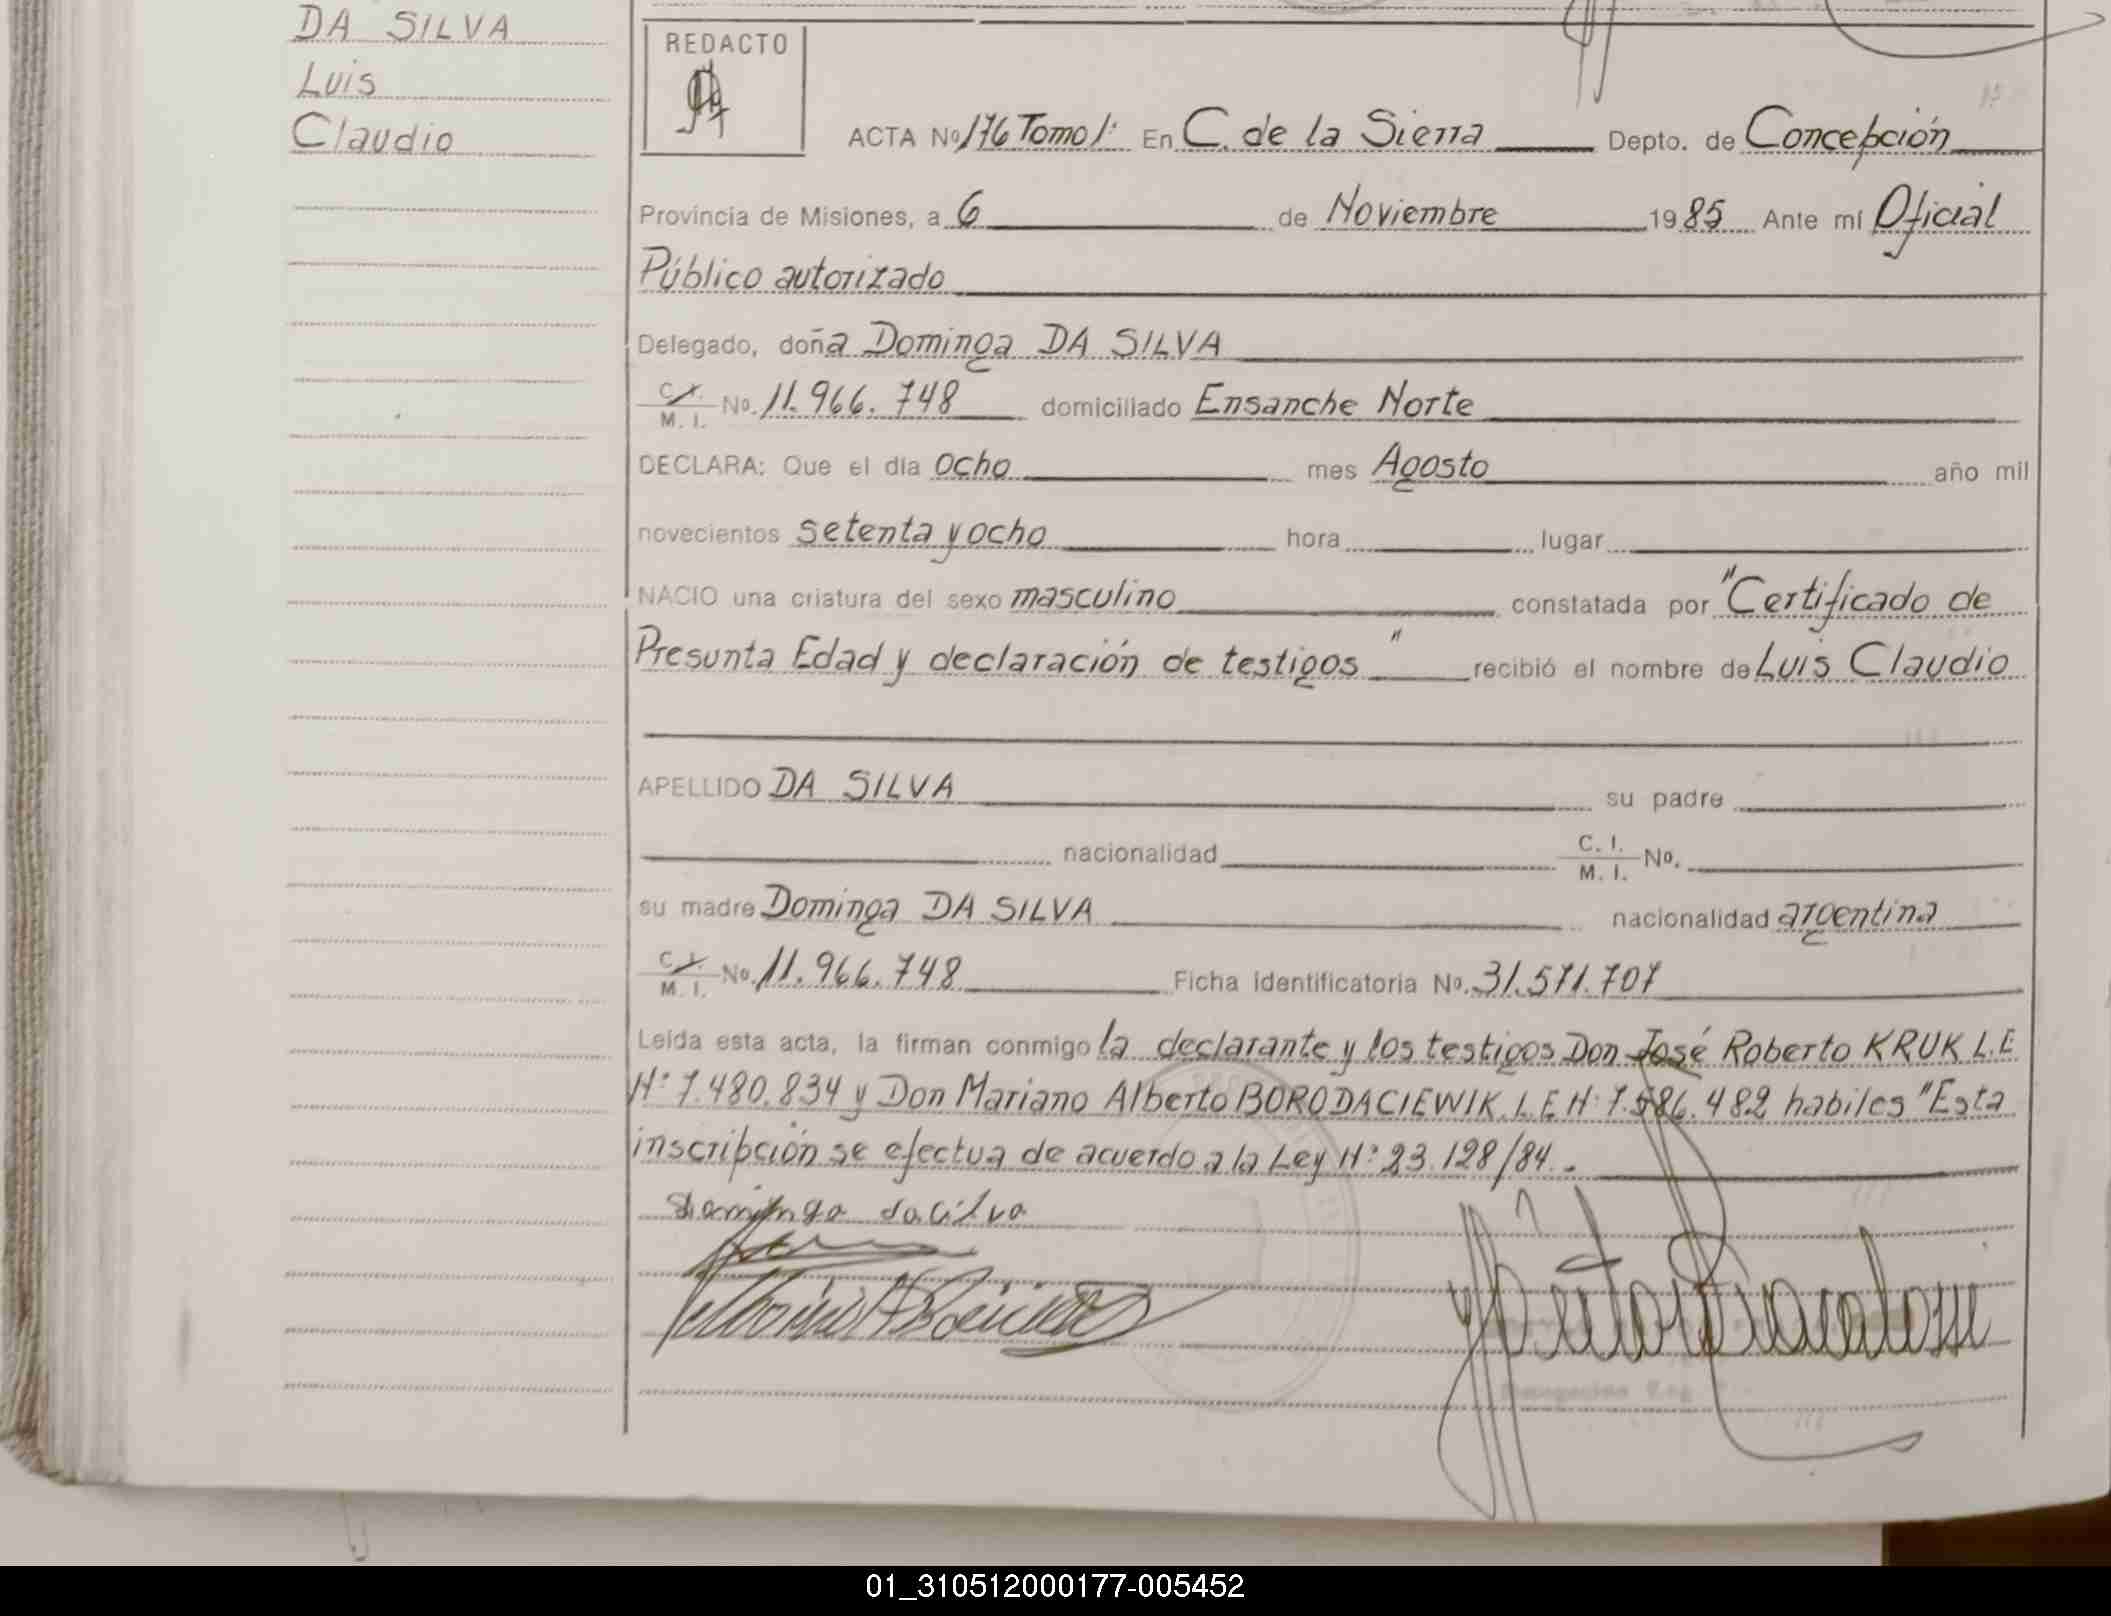 DA SILVA
Luis
Claudio
REDACTO
ACTA Nº 176 Tomo 1º En C. de la Sierra Depto. de Concepción
Provincia de Misiones, a 6 de Noviembre 1985 Ante mí Oficial
Público autorizado
Delegado, doña Dominga DA SILVA
C.I. M. I. No. 11.966.748 domiciliado Ensanche Norte
DECLARA: Que el día ocho mes Agosto año mil
novecientos setenta y ocho hora lugar
NACIO una criatura del sexo masculino constatada por "Certificado de
Presunta Edad y declaración de testigos" recibió el nombre de Luis Claudio
APELLIDO DA SILVA su padre
nacionalidad C. I. M. I. No.
su madre Dominga DA SILVA nacionalidad argentina
C.I. M. I. No. 11.966.748 Ficha identificatoria No. 31.571.707
Leída esta acta, la firman conmigo la declarante y los testigos Don José Roberto KRUK L.E
Nº 7.480.834 y Don Mariano Alberto BORODACIEWIK L.E Nº 7.586.482 habiles "Esta
inscripción se efectua de acuerdo a la Ley Nº 23.128/84.
Dominga dacilva
01_310512000177-005452